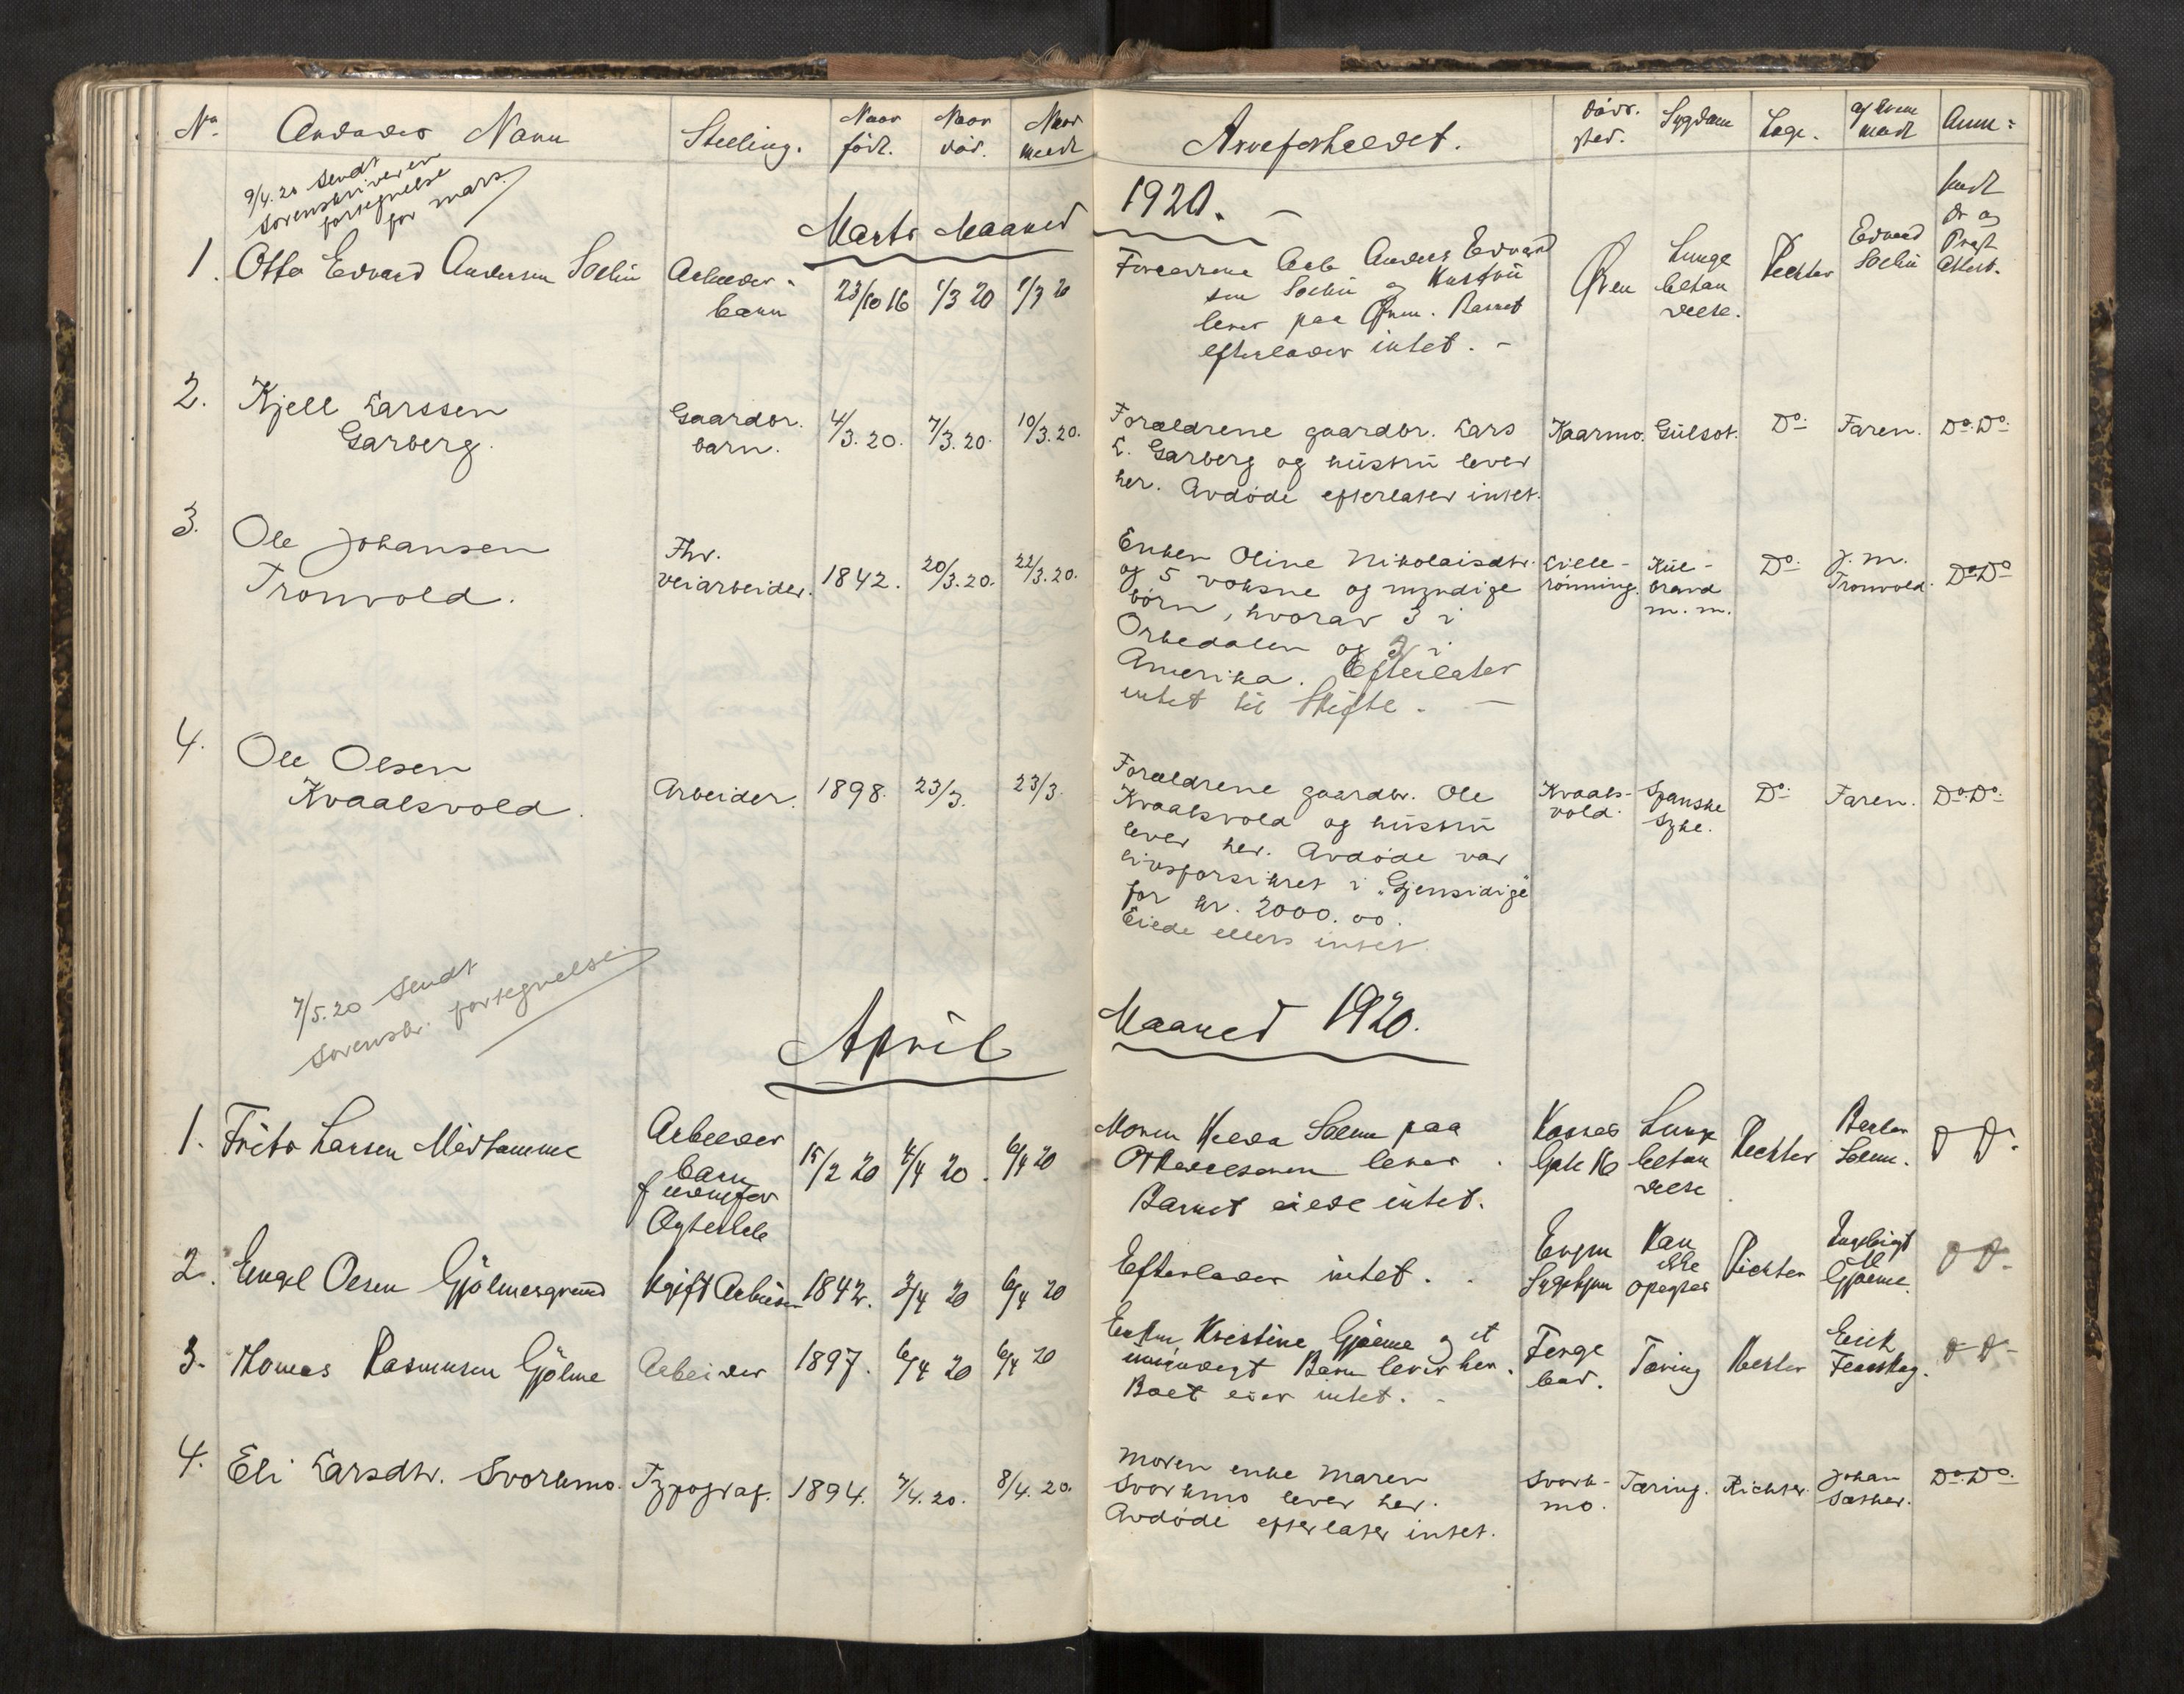 No. Avdødes Navn Stilling. Naar født. Naar död. Naar meldt Arveforholdet. Döds. sted. Sygdom Læge. af hvem meldt Anm:
9/4.20 sendt
sorenskriveren
fortegnelse
for mars.
Marts Maaned 1920. –
1. Otto Edvard Andersen Solli Arbeider- 23/10 16 1/3 20 1/3 20 Forældrene Arb Anders Edvard Øren Lunge Richter Edvard
barn sen Solli og Hustru betæn Solli
lever paa Øren. Barnet delse.
efterlader intet. –
Attest.
2. Kjell Larssen Gaardbr. 4/3.20. 7/3.20. 10/3.20. Forældrene gaardbr. Lars Kaarmo. Gulsot. Do. Faren. Do. Do.
Garberg. barn. L. Garberg og hustru lever
her. Avdøde efterlater intet.
3. Ole Johansen Fhv. 1842. 20/3.20. 22/3.20. Enken Oline Nikolaisdtr. Lille- Kul- Do. J. M. Do Do
Tronvold. veiarbeider. og 5 voksne og myndige rønning. brand Tronvold.
børn, hvorav 3 i m. m.
Orkedalen og 2 i
Amerika. Efterlater
intet til Skifte. –
4. Ole Olsen Arbeider. 1898. 23/3. 23/3. Forældrene gaardbr. Ole Kvaals- Spanske Do. Faren. Do. Do.
Kvaalsvold. Kvaalsvold og hustru vold. Syke.
lever her. Avdøde var
livsforsikret i "Gjensidige"
for kr. 2000.00.
Eiede ellers intet.
7/5.20 sendt
sorenskr. fortegnelse.
April Maaned 1920.
1. Frits Larsen Arbeider 15/2 20 4/4 20. 6/4 20 Moren Solem paa Lunge Richter Solem. D D.
barn lever. Gate betæn
udenfor Barnet eiede intet. delse
Ægteskab
2. Engel Olsen Gjølmesgrund Ugift 1842. 3/4 20 6/4 20 Efterlader intet. Kan Richter Ingebrigt D D.
Sygehjem ikke Gjølme.
opegives
3. Thomas Rasmussen Gjølme Arbeider 1897. 6/4 20 6/4 20 Enken Kristine Gjølme og et Tæring Richter Erik D D.
umyndigt Barn lever her.
Boet eier intet. –
4. Eli Larsdtr. Svorkmo. Typograf. 1894. 7/4.20. 8/4.20. Moren enke Maren Svork- Tæring. Richter. Johan Do. Do.
Svorkmo lever her. mo. Sæther.
Avdøde efterlater intet.